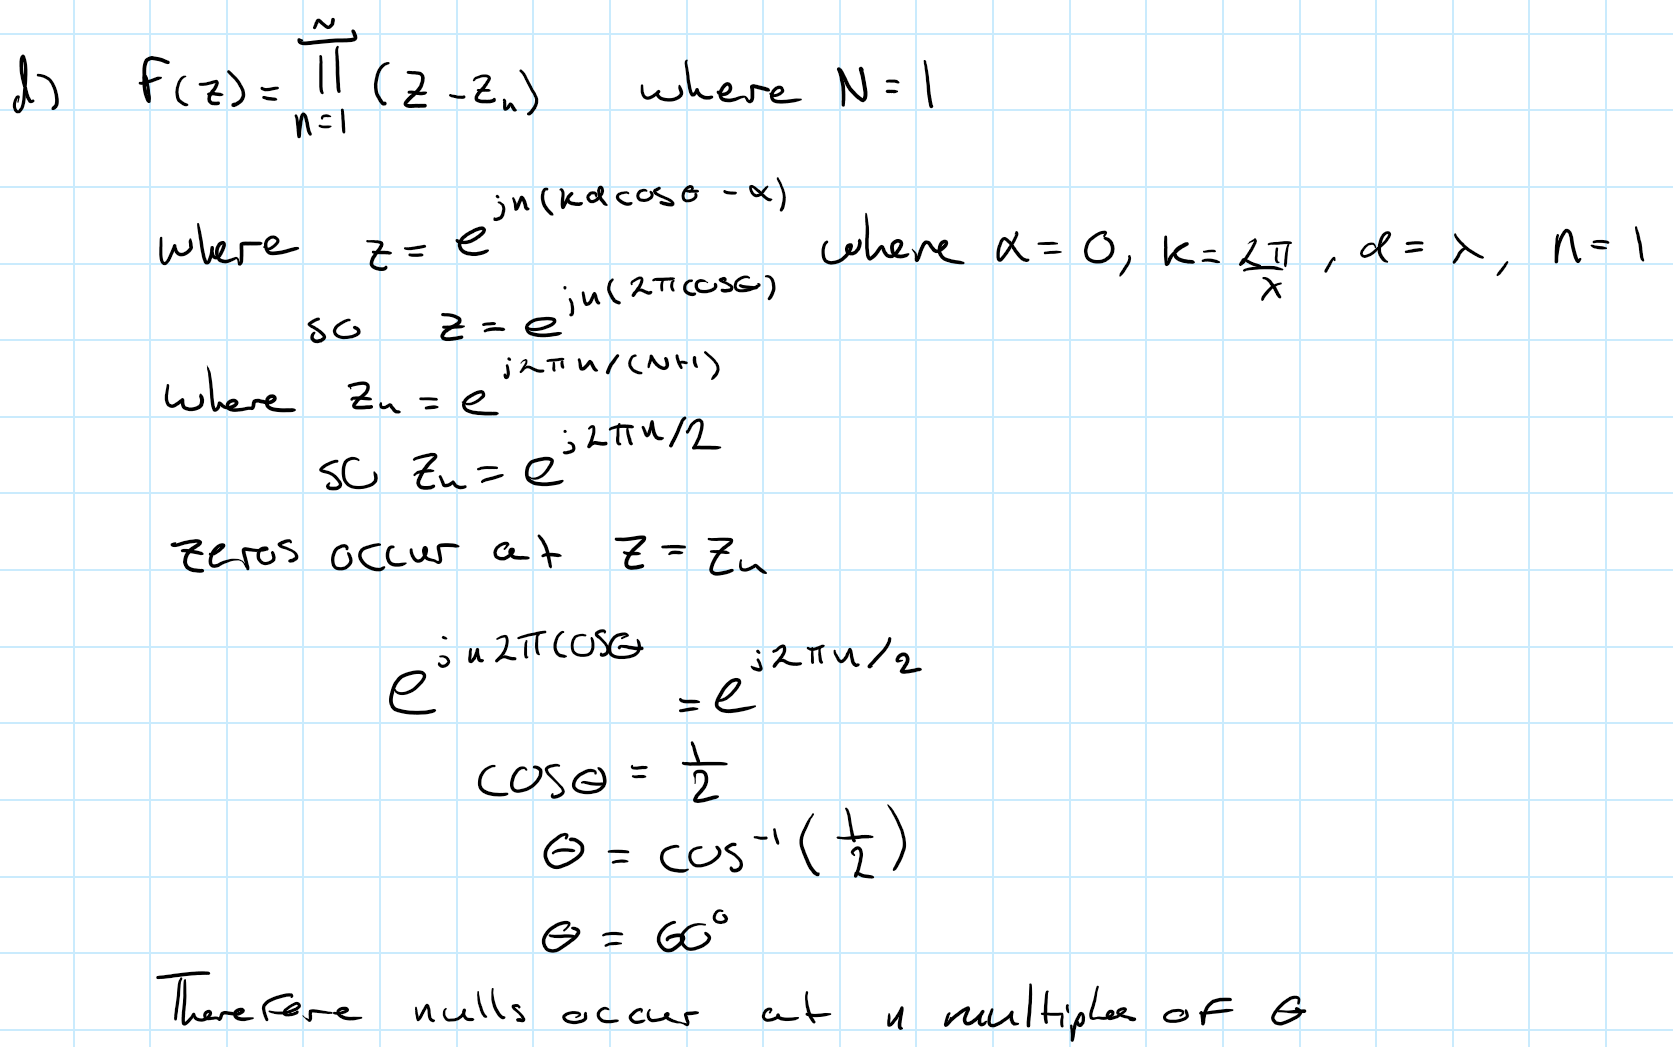 d) F(z) = ∏_{n=1}^{N} (z - z_n) where N = 1
where z = e^{jn(kd cosθ - α)} where α = 0, k = 2π/λ, d = λ, n = 1
so z = e^{jn(2π cosθ)}
where z_n = e^{j2πn/(N+1)}
so z_n = e^{j2πn/2}
zeros occur at z = z_n
e^{jn2π cosθ} = e^{j2πn/2}
cosθ = 1/2
θ = cos⁻¹(1/2)
θ = 60°
Therefore nulls occur at n multiples of θ